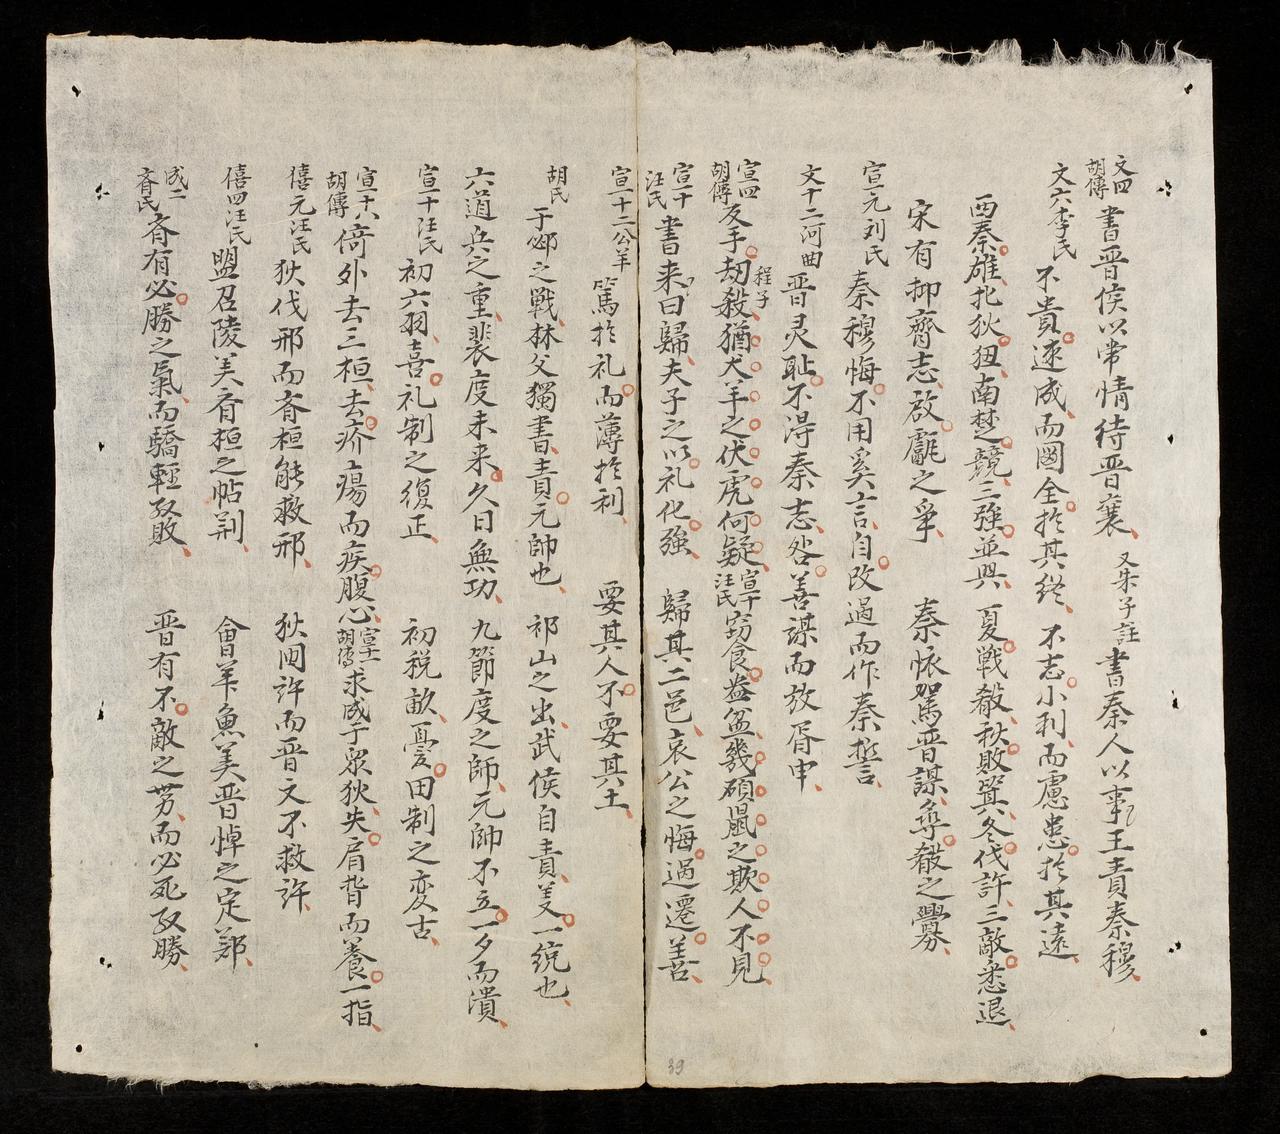 文四胡傳 書晋侯以常情待晋襄 又朱子註 書秦人以事王責秦穆
文六李氏 不貴速成而圖全於其終 不志小利而慮患於其遠
西秦雄北狄狃南楚競三強並興 夏戰殽秋敗箕冬伐許三敵悉退
宋有抑齊志啟甗之爭 秦恢駕晋謀尋殽之釁
宣元刘氏 秦穆悔不用奚言自改過而作秦誓
文十二河曲 晋灵耻不得秦志咎善謀而放胥甲
宣四胡傳 反手刼殺猶犬羊之伏虎何疑 程子 宣十汪氏 窃食盎盆幾碩鼠之欺人不見
宣十汪氏 書来曰歸夫子之以礼化強 歸其二邑哀公之悔過遷善
宣十二公羊 篤於礼而薄於利 要其人不要其土
胡氏 于邲之戰林父獨書責元帥也 祁山之出武侯自責美一統也
六道兵之重裴度未来久日無功 九節度之師元帥不立一夕而潰
宣十汪氏 初六羽喜礼制之復正 初税畝憂田制之变古
宣十八胡傳 倚外去三桓去疥瘍而疾腹心 宣十一胡傳 求成于衆狄失肩背而養一指
僖元汪氏 狄伐邢而斉桓能救邢 狄囲許而晋文不救許
僖四汪氏 盟召陵美斉桓之帖荆 會羊魚美晋悼之定郑
成二斉氏 斉有必勝之氣而驕輕致敗 晋有不敵之势而必死致勝
39